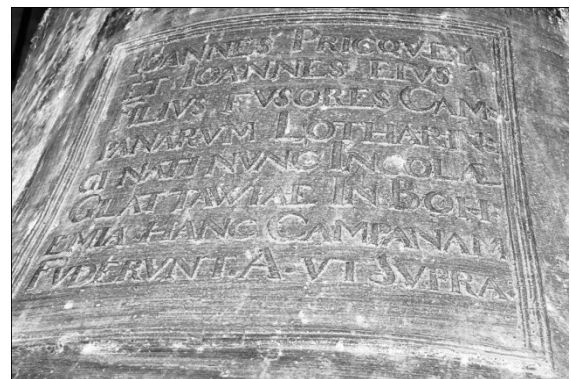 IOANNES PRICQVEY
ET IOANNES EIVS
FILIVS FVSORES CAM
PANARVM LOTHARIN
GI NATI NVNC INCOLÆ
GLATTAWIAE IN BOH
EMIA HANC CAMPANAM
FVDERVNT. A. VT SVPRA